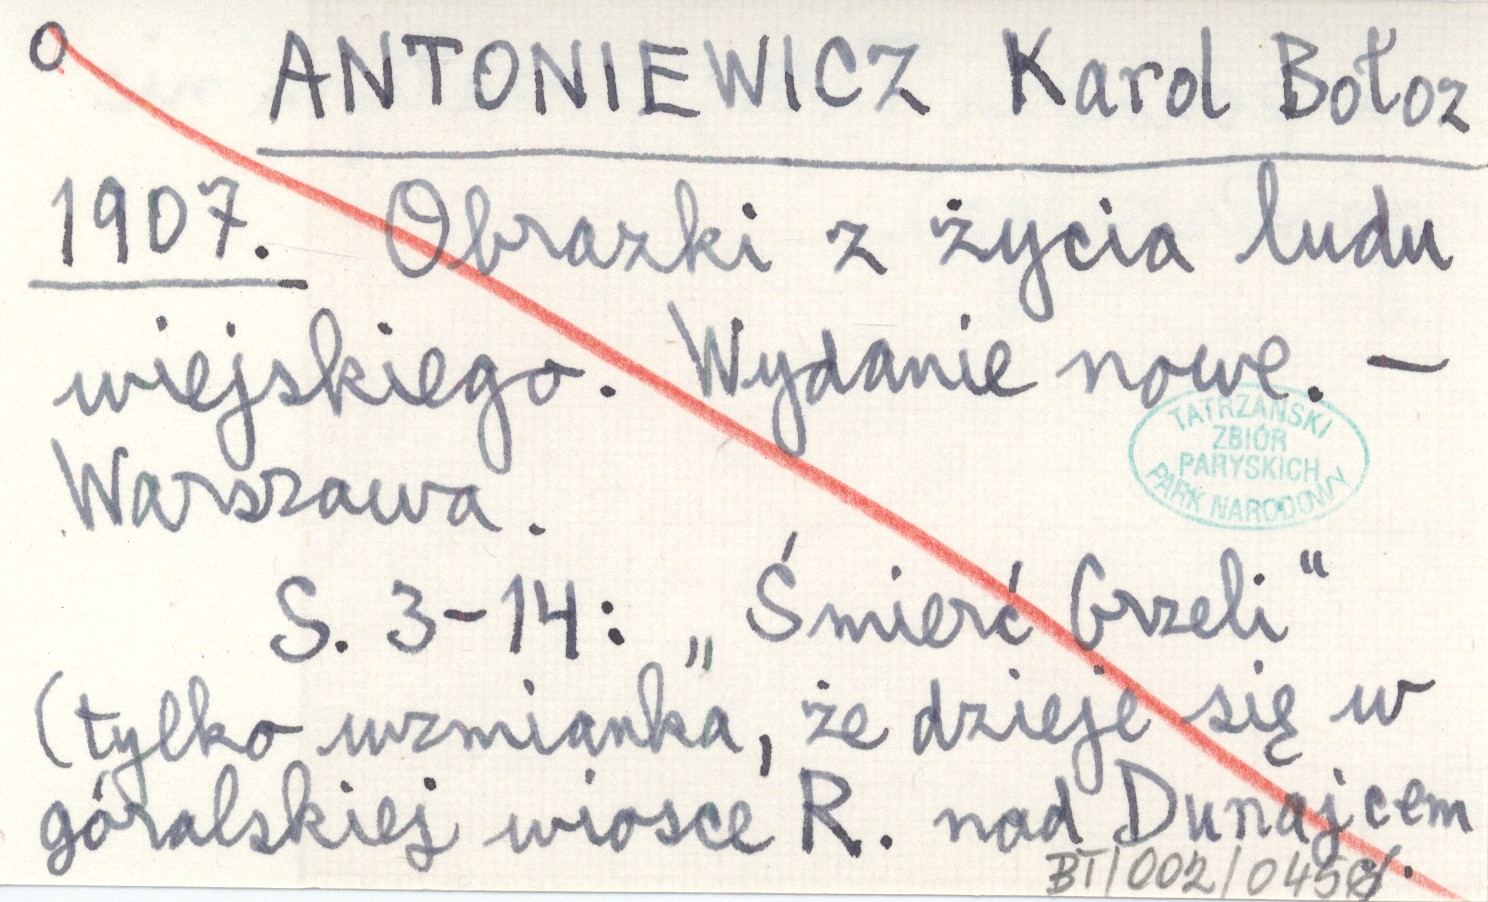 O ANTONIEWICZ Karol Bołoz
1907. Obrazki z życia ludu
wiejskiego. Wydanie nowe. —
Warszawa.
TATRZAŃSKI
ZBIÓR
PARYSKICH
PARK NARODOWY
S. 3-14: „Śmierć Grzeli"
(tylko wzmianka, że dzieje się w
góralskiej wiosce R. nad Dunajcem.